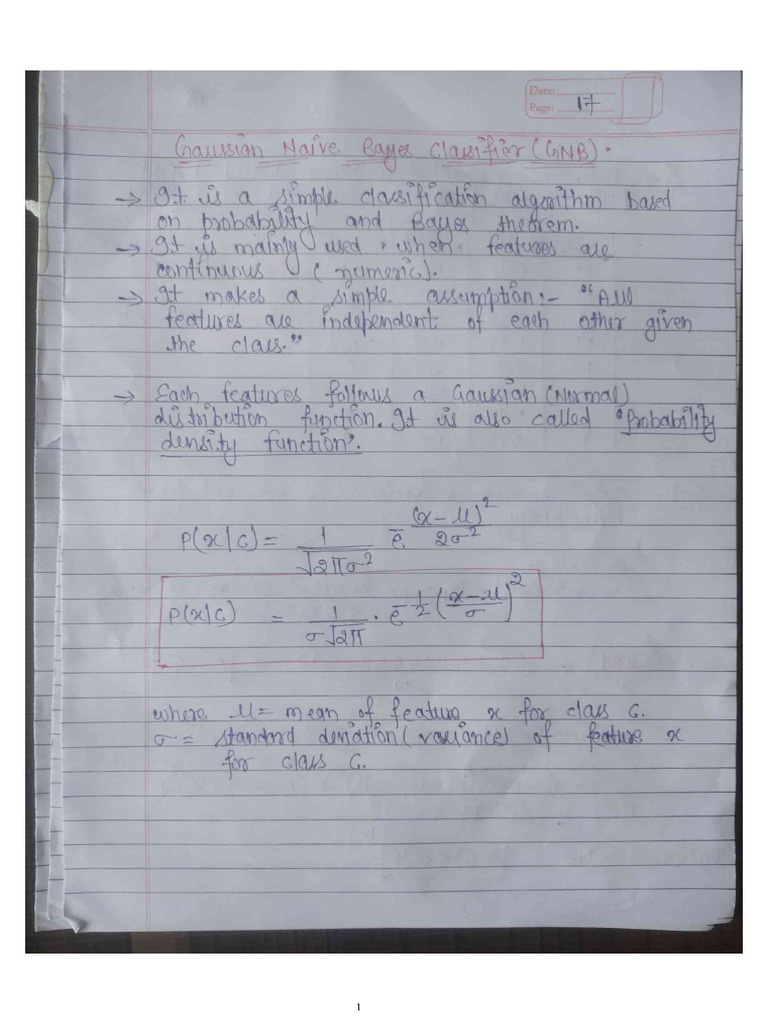 Date:
Page: 17
Gaussian Naive Bayes Classifier (GNB).
→ It is a simple classification algorithm based
on probability and Bayes theorem.
→ It is mainly used, when features are
continuous (numeric).
→ It makes a simple assumption:- "All
features are independent of each other given
the class."
→ Each features follows a Gaussian (Normal)
distribution function. It is also called "Probability
density function".
P(x|C) = 1/√2πσ² e^-(x-μ)²/2σ²
P(x|C) = 1/σ√2π . e^-1/2((x-μ)/σ)²
where μ = mean of feature x for class C.
σ = standard deviation (variance) of feature x
for class C.
1